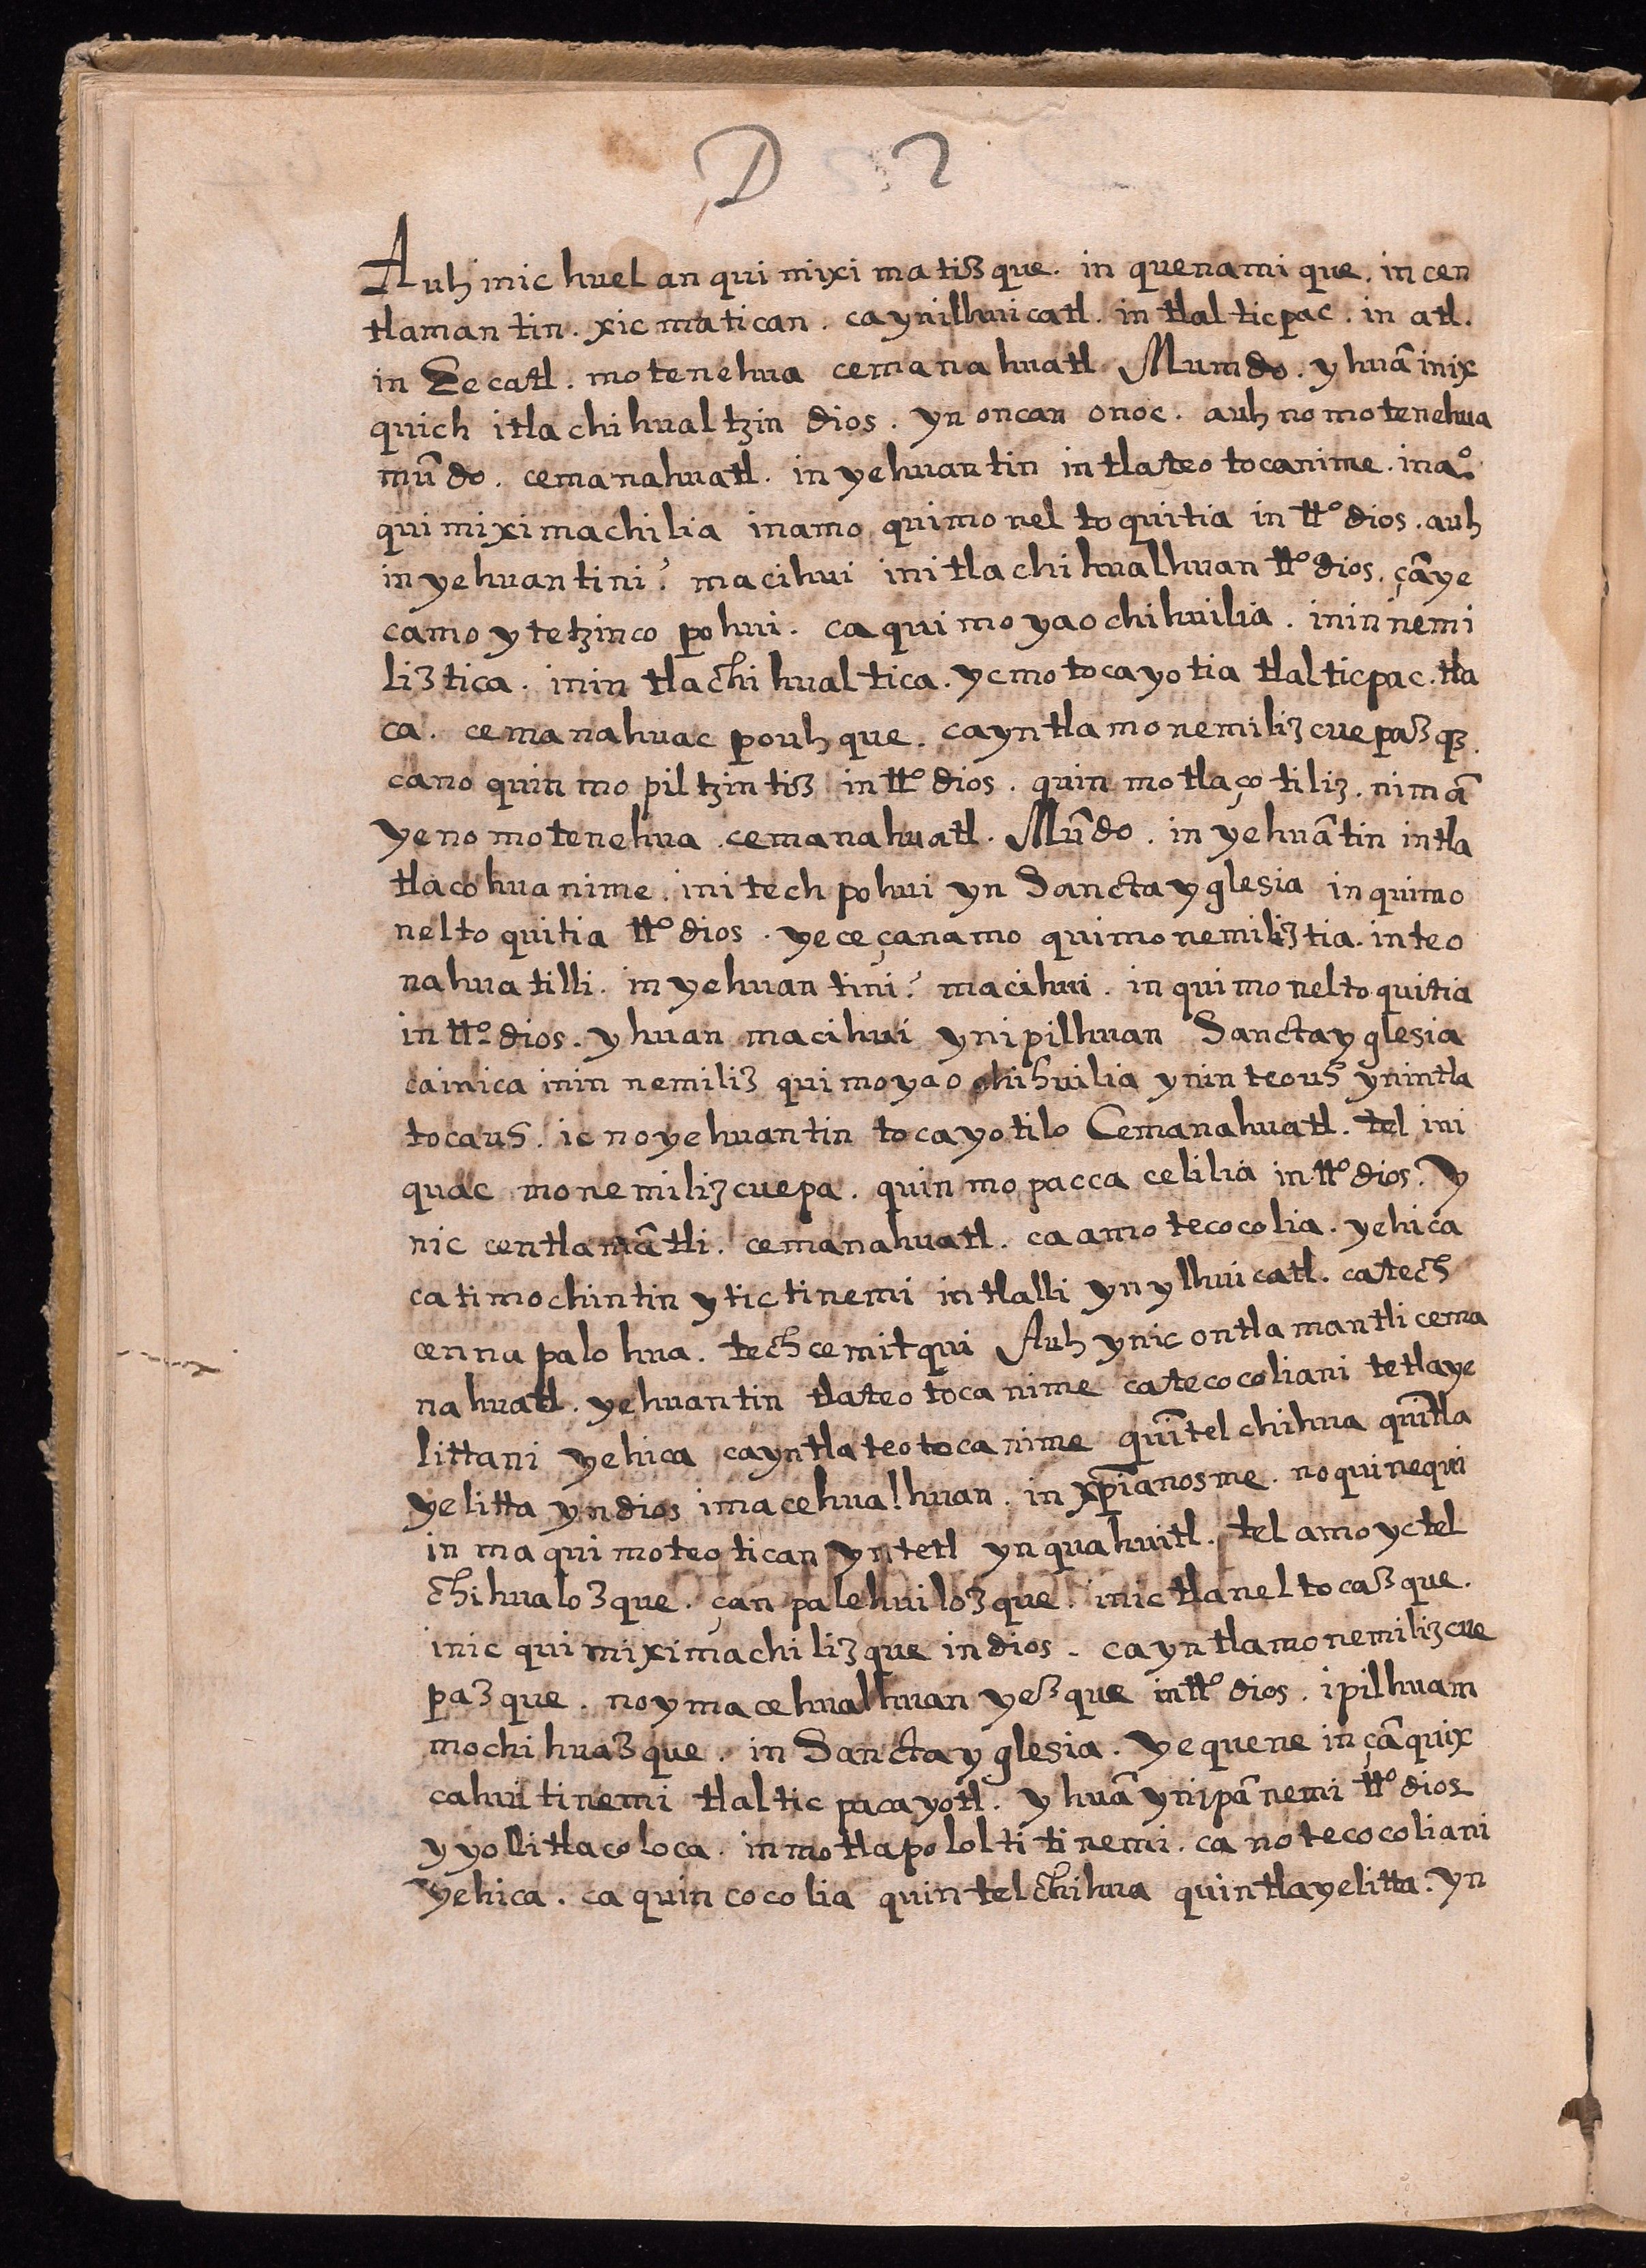 D 2
Auh inic huel an qui mixi matiz que. in quenami que. in cen
tlaman tin. xic matican. ca ynilhuicatl. in tlal ticpac. in atl.
in Eecatl. motenehua cemanahuatl Mumdo. yhuã inix
quich itlachihualtzin dios. yn oncan onoc. auh no motenehua
mũdo. cemanahuatl. in yehuantin in tlateo tocanime. in aº.
qui miximachilia in amo quimo nel toquitia in ttº dios. auh
in yehuantin i? macihui in itlachihualhuan ttº dios. çã ye
camo ytetzinco pohui. ca qui mo yaochihuilia. in in nemi
liztica. in in tlachihualtica. yc mo tocayotia tlalticpac. tla
ca. cemanahuac pouhque. ca yntla monemilizcuepazqз.
ca no quin mo piltzintiz in ttº dios. quin motlaçotiliz. nimã
ye no motenehua cemanahuatl. Mũdo. in yehuãtin in tla
tlacohuanime. in itech pohui yn Sancta yglesia in quimo
neltoquitia ttº dios. yece çan amo quimonemiliztia. in teo
nahuatilli. in yehuantin i? macihui. in quimoneltoquitia
in ttº dios. yhuan macihui yn ipilhuan Sancta yglesia
ca inica in in nemiliz quimoyaochihuilia yn in teouh yn intla
tocauh. ic no yehuantin tocayotilo Cemanahuatl. tel ini
quac monemilizcuepa. quinmopaccacelilia in ttº dios. Y
nic centlamãtli. cemanahuatl. ca amo tecocolia. yehica
ca timochintin ytic tinemi in tlalli yn ylhuicatl. ca tech
cennapalohua. techcemitqui Auh ynic ontlamantli cema
nahuatl. yehuantin tlateotocanime ca tecocoliani tetlaye
littani yehica ca yn tlateotocanime quĩtelchihua quĩtla
yelitta yn dios imacehualhuan. in xpianosme. no quinequi
in ma quimoteotican yn tetl yn quahuitl. tel amo yc tel
chihualozque. çan palehuilozque. inic tlaneltocazque.
inic quimiximachilizque in dios. ca yntla monemilizcue
pazque. no ymacehualhuan yezque in ttº dios. ipilhuam
mochihuazque. in Sancta yglesia. Yequene in çã quix
cahuitinemi tlalticpacayotl. yhuã yn ipã nemi ttº dios
yyollitlacoloca. in motlapololtitinemi. ca no tecocoliani
Yehica. ca quincocolia quintelchihua quintlayelitta. yn